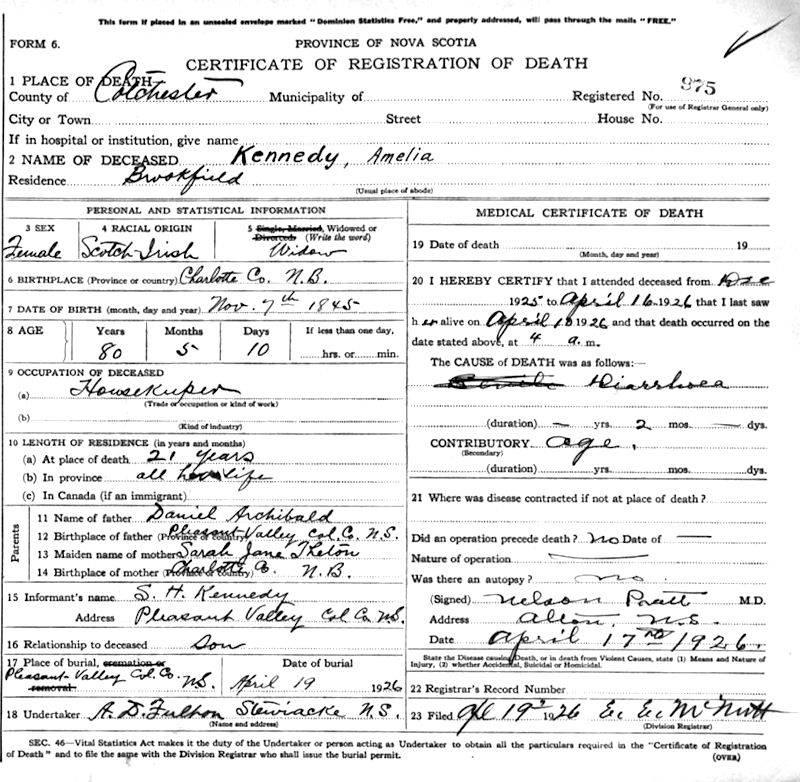 This form if placed in an unsealed envelope marked "Dominion Statistics Free," and properly addressed, will pass through the mails "FREE."
FORM 6.
PROVINCE OF NOVA SCOTIA
CERTIFICATE OF REGISTRATION OF DEATH
1 PLACE OF DEATH
County of Colchester Municipality of Registered No. 975
(For use of Registrar General only)
City or Town Street House No.
If in hospital or institution, give name
2 NAME OF DECEASED Kennedy, Amelia
Residence Brookfield
(Usual place of abode)
PERSONAL AND STATISTICAL INFORMATION
3 SEX 4 RACIAL ORIGIN 5 Single, Married, Widowed or Divorced (Write the word)
Female Scotch-Irish Widow
6 BIRTHPLACE (Province or country) Charlotte Co. N.B.
7 DATE OF BIRTH (month, day and year) Nov. 7th 1845
8 AGE Years Months Days If less than one day,
80 5 10 hrs. or min.
9 OCCUPATION OF DECEASED
(a) Housekeeper
(Trade or occupation or kind of work)
(b)
(Kind of industry)
10 LENGTH OF RESIDENCE (in years and months)
(a) At place of death 21 years
(b) In province all life
(c) In Canada (if an immigrant)
Parents
11 Name of father Daniel Archibald
12 Birthplace of father (Province or country) Pleasant Valley Col. Co. N.S.
13 Maiden name of mother Sarah Jane
14 Birthplace of mother (Province or country) Charlotte Co. N.B.
15 Informant's name S. H. Kennedy
Address Pleasant Valley Col Co. N.S.
16 Relationship to deceased Son
17 Place of burial, cremation or removal Date of burial
Pleasant Valley Col. Co. N.S. April 19 1926
18 Undertaker A. D. Fulton Stewiacke N.S.
(Name and address)
MEDICAL CERTIFICATE OF DEATH
19 Date of death 19
(Month, day and year)
20 I HEREBY CERTIFY that I attended deceased from Dec
1925 to April 16 1926 that I last saw
her alive on April 1926 and that death occurred on the
date stated above, at 4 a. m.
The CAUSE of DEATH was as follows:—
Diarrhoea
(duration) — yrs. 2 mos. — dys.
CONTRIBUTORY age.
(Secondary)
(duration) yrs. mos. dys.
21 Where was disease contracted if not at place of death?
Did an operation precede death? no Date of —
Nature of operation —
Was there an autopsy? no
(Signed) Nelson Pratt M.D.
Address Alton, N.S.
Date April 17th 1926.
State the Disease causing Death, or in death from Violent Causes, state (1) Means and Nature of
Injury, (2) whether Accidental, Suicidal or Homicidal.
22 Registrar's Record Number
23 Filed 19 1926 E. E. McNutt
(Division Registrar)
SEC. 46—Vital Statistics Act makes it the duty of the Undertaker or person acting as Undertaker to obtain all the particulars required in the "Certificate of Registration
of Death" and to file the same with the Division Registrar who shall issue the burial permit.
(OVER)